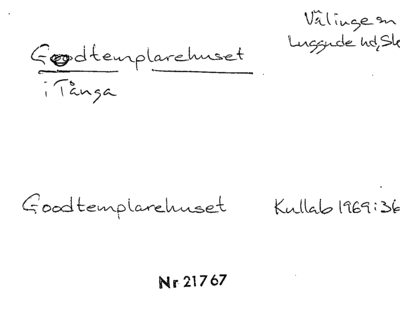 Välinge sn
Luggude hd, Sk
Goodtemplarehuset
i Tånga
Goodtemplarehuset Kullab 1969:36
Nr 21767